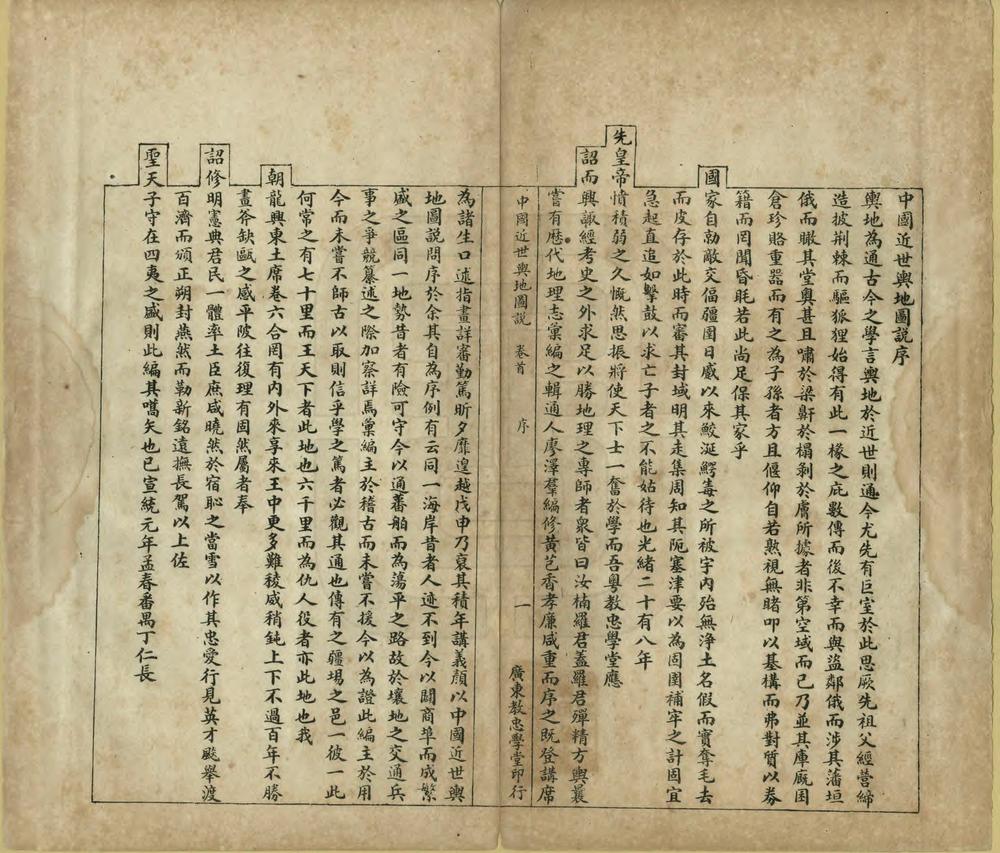 中國近世輿地圖説序
輿地為通古今之學言輿地於近世則通今尤先有巨室於此思厥先祖父經營締
造披荆棘而驅狐狸始得有此一椽之庇數傳而後不幸而與盜鄰俄而涉其藩垣
俄而瞰其堂奧甚且嘯於梁鼾於榻剥於膚所據者非第空域而已乃並其庫廐囷
倉珍賂重器而有之為子孫者方且偃仰自若熟視無睹叩以基構而弗對質以券
籍而罔聞昏眊若此尚足保其家乎
國家自勍敵交偪疆圉日蹙以來鮫涎鰐毒之所被宇内殆無浄土名假而實奪毛去
而皮存於此時而審其封域明其走集周知其阨塞津要以為固圉補牢之計固宜
急起直追如擊鼓以求亡子者之不能姑待也光緒二十有八年
先皇帝憤積弱之久慨然思振將使天下士一奮於學而吾粤教忠學堂應
詔而興諏經考史之外求足以勝地理之專師者衆皆曰汝楠羅君蓋羅君殫精方輿曩
嘗有歷代地理志彙編之輯通人廖澤羣編修黄芑香孝廉咸重而序之既登講席
中國近世輿地圖説 卷首 序 一 廣東教忠學堂印行
為諸生口述指畫詳審勤篤昕夕靡遑越戊申乃裒其積年講義顔以中國近世輿
地圖説問序於余其自為序例有云同一海岸昔者人迹不到今以闢商埠而成繁
盛之區同一地勢昔者有險可守今以通蕃舶而為蕩平之路故於壤地之交通兵
事之爭競纂述之際加察詳焉彙編主於稽古而未嘗不援今以為證此編主於用
今而未嘗不師古以取則信乎學之篤者必觀其通也傳有之疆埸之邑一彼一此
何常之有七十里而王天下者此地也六千里而為仇人役者亦此地也我
朝龍興東土席卷六合罔有内外來享來王中更多難稜威稍鈍上下不過百年不勝
畫斧缺甌之感平陂往復理有固然屬者奉
詔修明憲典君民一體率土臣庶咸曉然於宿恥之當雪以作其忠愛行見英才飈舉渡
百濟而頒正朔封燕然而勒新銘遠撫長駕以上佐
聖天子守在四夷之盛則此編其嚆矢也已宣統元年孟春番禺丁仁長